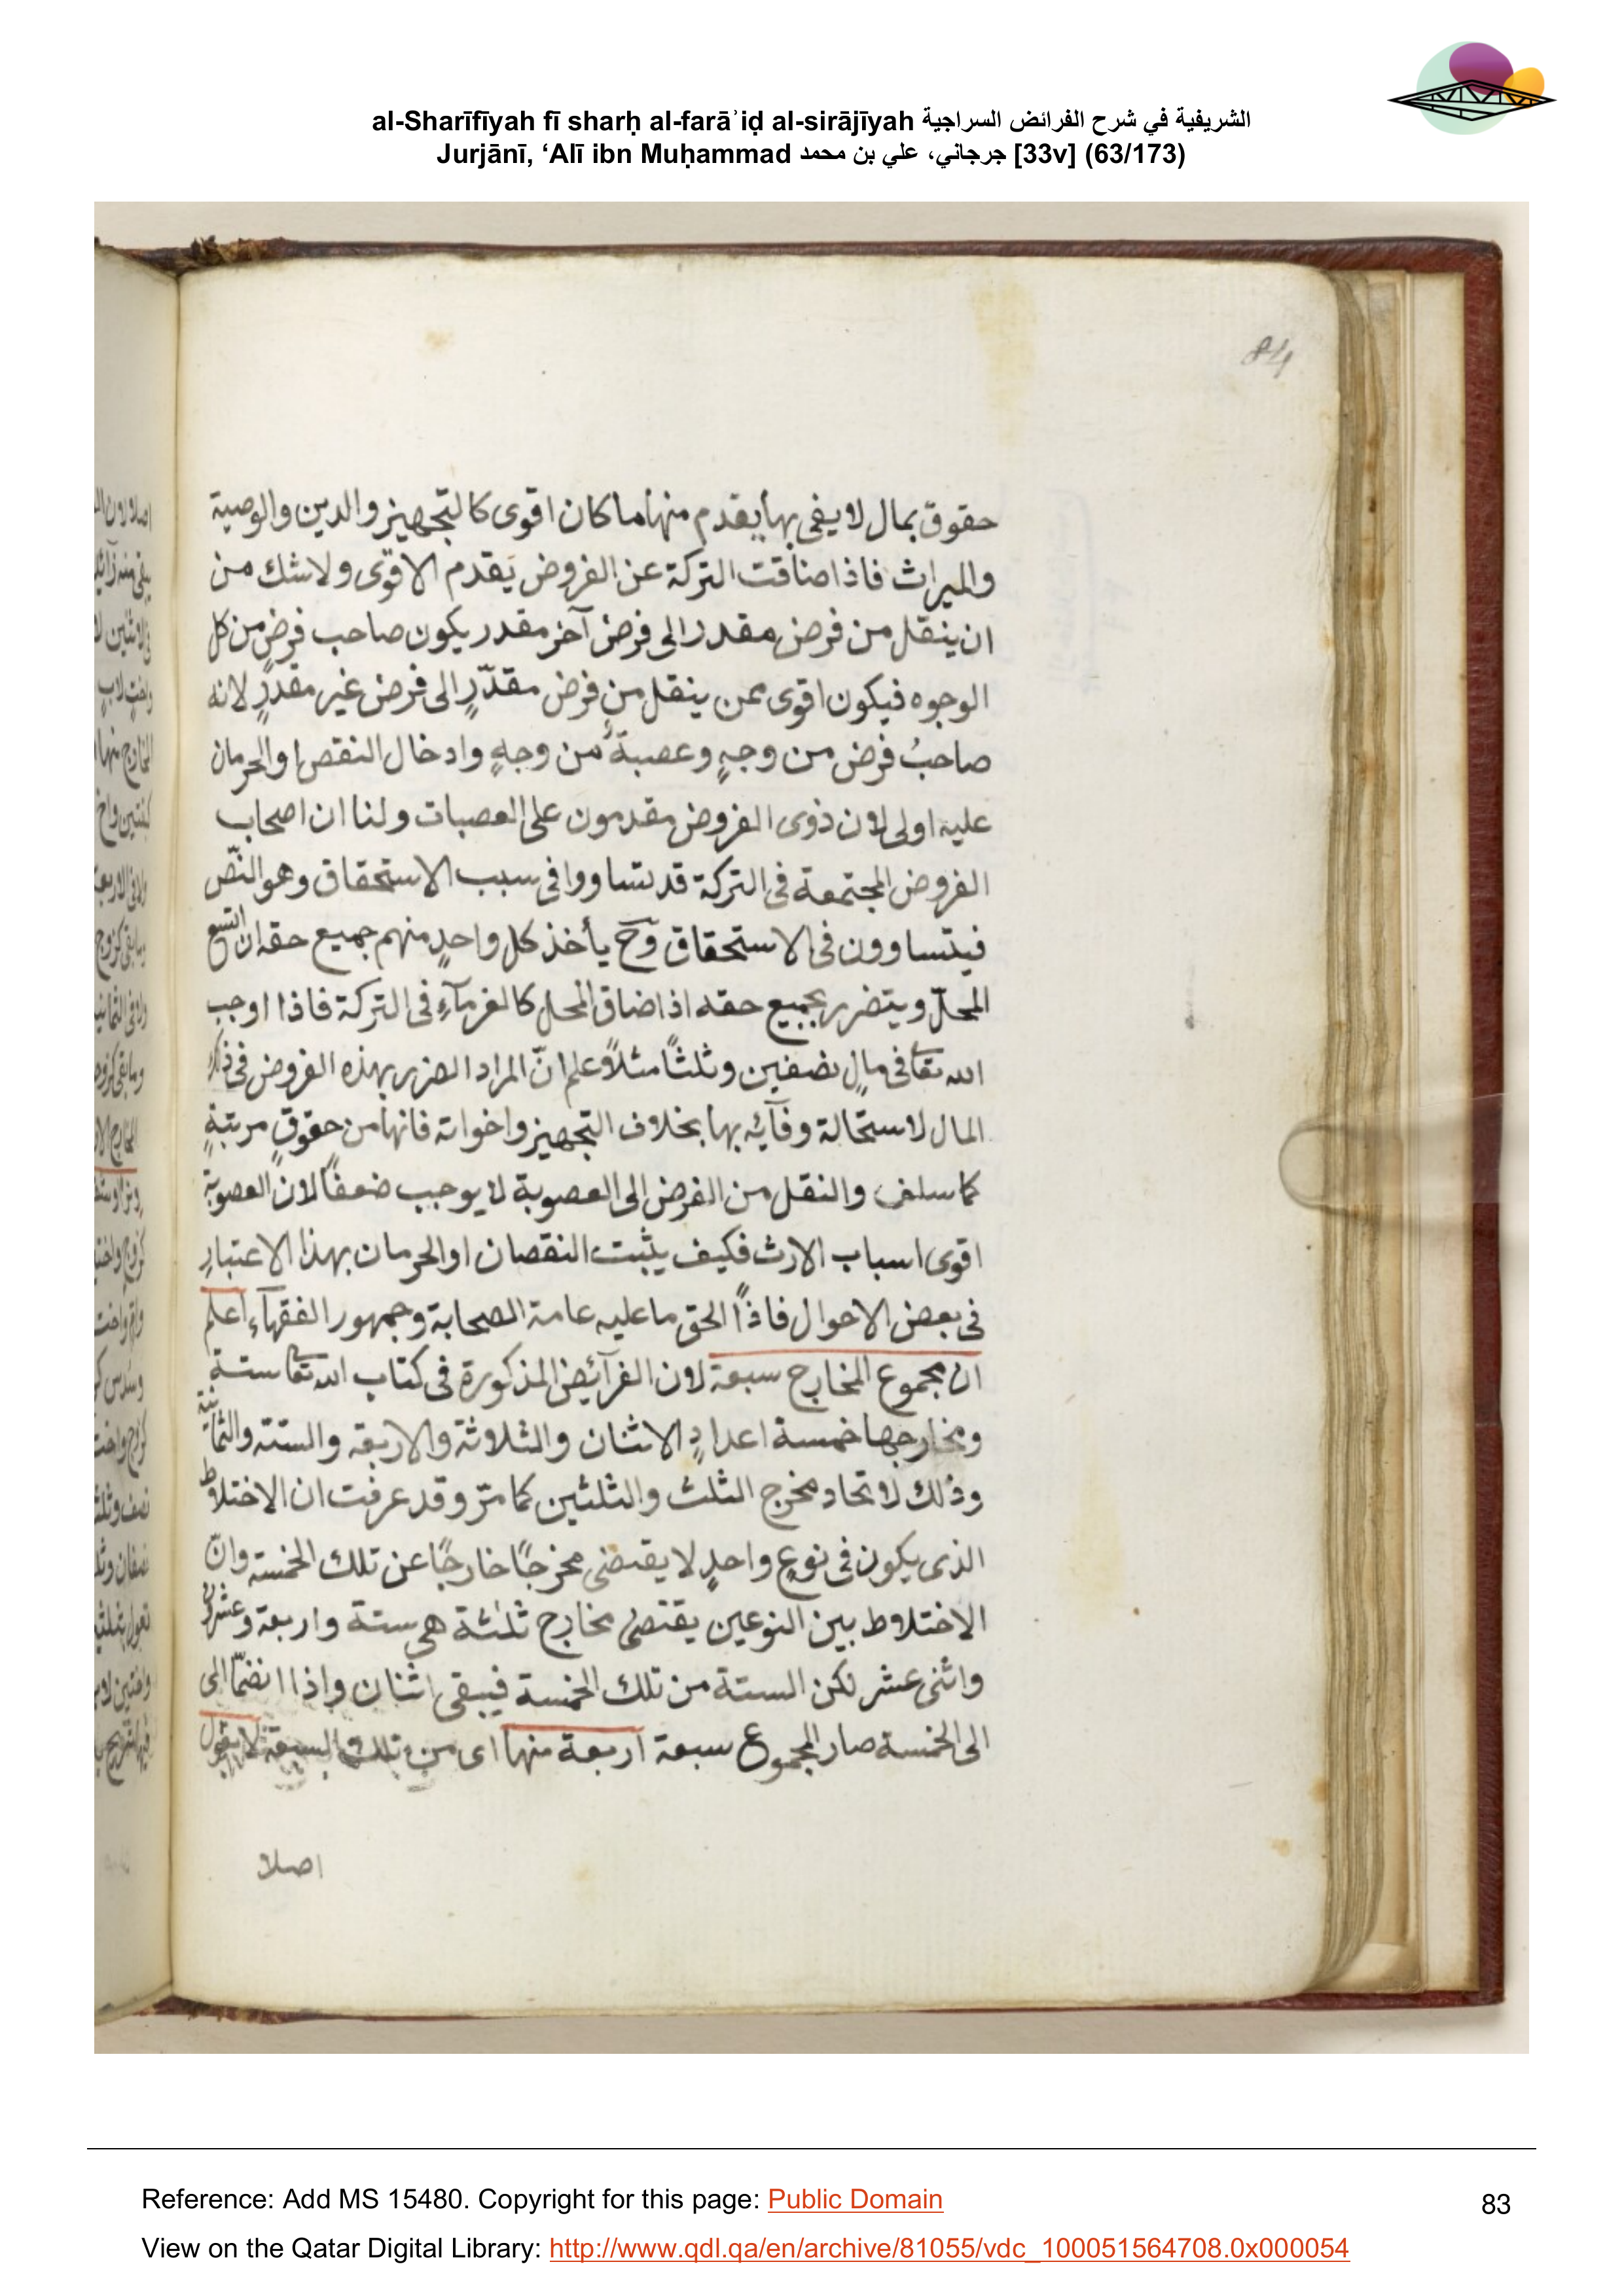 al-Sharīfīyah fī sharḥ al-farāʾiḍ al-sirājīyah الشريفية في شرح الفرائض السراجية
Jurjānī, ‘Alī ibn Muḥammad جرجاني، علي بن محمد [33v] (63/173)
84
حقوق بمال لا يفى بها يقدم منها ما كان اقوى كالتجهيز والدين والوصية
والميراث فاذا ضاقت التركة عن الفروض يقدم الاقوى ولا شك من
ان ينقل من فرض مقدر الى فرض آخر مقدر يكون صاحب فرض من كل
الوجوه فيكون اقوى ممن ينقل من فرض مقدّرٍ الى فرض غير مقدرٍ لانه
صاحبُ فرض من وجهٍ وعصبةٌ من وجهٍ وادخال النقص او الحرمان
عليه اولى لان ذوى الفروض مقدمون على العصبات ولنا ان اصحاب
الفروض المجتمعة فى التركة قد تساووا فى سبب الاستحقاق وهو النّص
فيتساوون فى الاستحقاق وحَ يأخذ كل واحدٍ منهم جميع حقه ان اتسع
المحلّ ويتضرر بجميع حقه اذا ضاق المحل كالغرمآءِ فى التركة فاذا اوجب
الله تعا فى مالٍ نصفين وثلثاً مثلاً علم انّ المراد الضرر بهذه الفروض فى ذلك
المال لاستحالة وفآئه بها بخلاف التجهيز واخواته فانها من حقوقٍ مرتبةٍ
كما سلف والنقل من الفرض الى العصوبة لا يوجب ضعفاً لان العصوبة
اقوى اسباب الارث فكيف يثبت النقصان او الحرمان بهذا الاعتبارِ
فى بعض الاحوال فاذاً الحق ما عليه عامة الصحابة وجمهور الفقهآء اعلم
ان مجموع المخارج سبعة لان الفرآئض المذكورة فى كتاب الله تعا ستة
ومخارجها خمسة اعدادٍ الاثنان والثلاثة والاربعه والستة والثمانية
وذلك لاتحاد مخرج الثلث والثلثين كما مرّ وقد عرفت ان الاختلاط
الذى يكون فى نوعٍ واحدٍ لا يقتضى مخرجًا خارجًا عن تلك الخمسة وانّ
الاختلاط بين النوعين يقتضى مخارج ثلثة هى ستة واربعة وعشرون
واثنى عشر لكن الستة من تلك الخمسة فيبقى اثنان واذا انضمّا الى
الى الخمسة صار المجموع سبعة اربعة منها اى من تلك السبعة لا تعول
اصلا
Reference: Add MS 15480. Copyright for this page: Public Domain
83
View on the Qatar Digital Library: http://www.qdl.qa/en/archive/81055/vdc_100051564708.0x000054